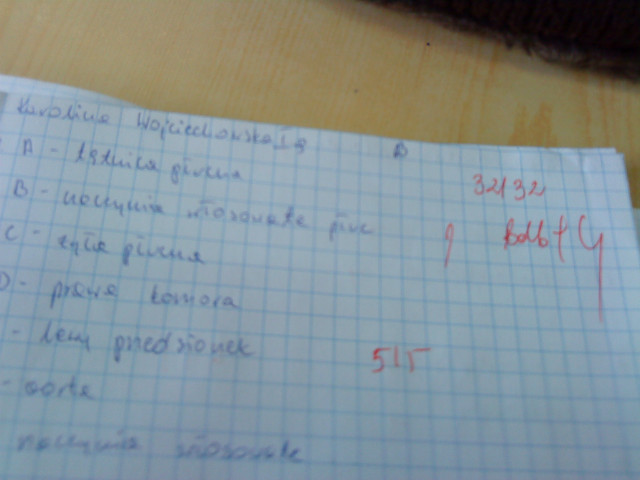 Karolina Wojciechowska I g B
A - tętnica płucna 32/32
B - naczynia włosowate płuc Bdb+
C - żyła płucna
D - prawa komora
- lewy przedsionek 5/5
- aorta
naczynia włosowate